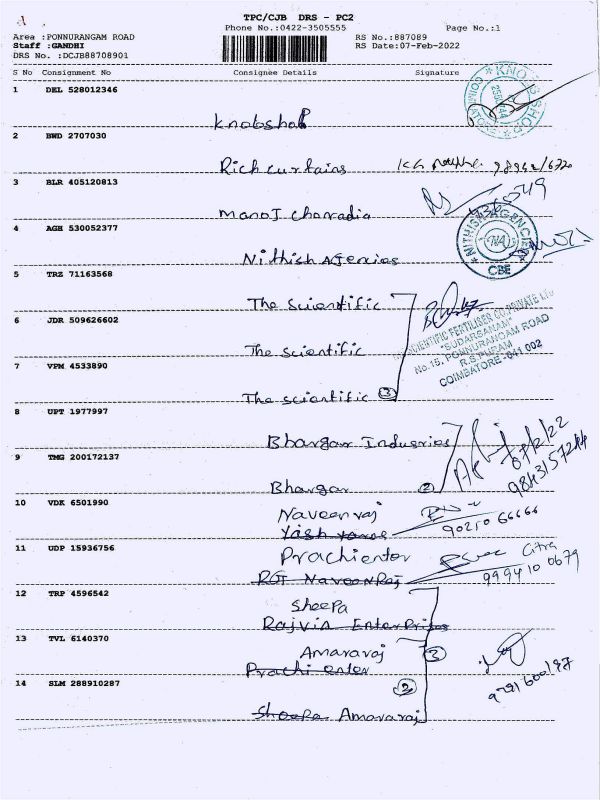 TPC/CJB DRS - PC2
Phone No.:0422-3505555 Page No.:1
Area :PONNURANGAM ROAD RS No.:887089
Staff :GANDHI RS Date:07-Feb-2022
DRS No. :DCJB88708901
S No Consignment No Consignee Details Signature
1 DEL 528012346
Knobshop
KNOB SHOP COIMBATORE
2 BWD 2707030
Rich curtains
3 BLR 405120813
Manoj Choradia
4 AGH 530052377
Nithish Agencies
NITHISH AGENCIES NA CBE
5 TRZ 71163568
The Scientific
6 JDR 509626602
The scientific
SCIENTIFIC FERTILISER CO. PRIVATE LTD
"SUDARSANAM"
No.15, PONNURANGAM ROAD
R.S.PURAM
COIMBATORE-641 002
7 VPM 4533890
The scientific 3
8 UPT 1977997
Bhargav Indusries
07/2/22
9 TMG 200172137
Bhargav 2
10 VDK 6501990
Naveenraj
90210 66666
11 UDP 15936756
Prachienter
RGT NaveenRaj
Citra
999410 0679
12 TRP 4596542
Sheepa
Rajvin Enterprises
13 TVL 6140370
Amararaj 3
Prachi enter
14 SLM 288910287
2
Sheepa Amararaj